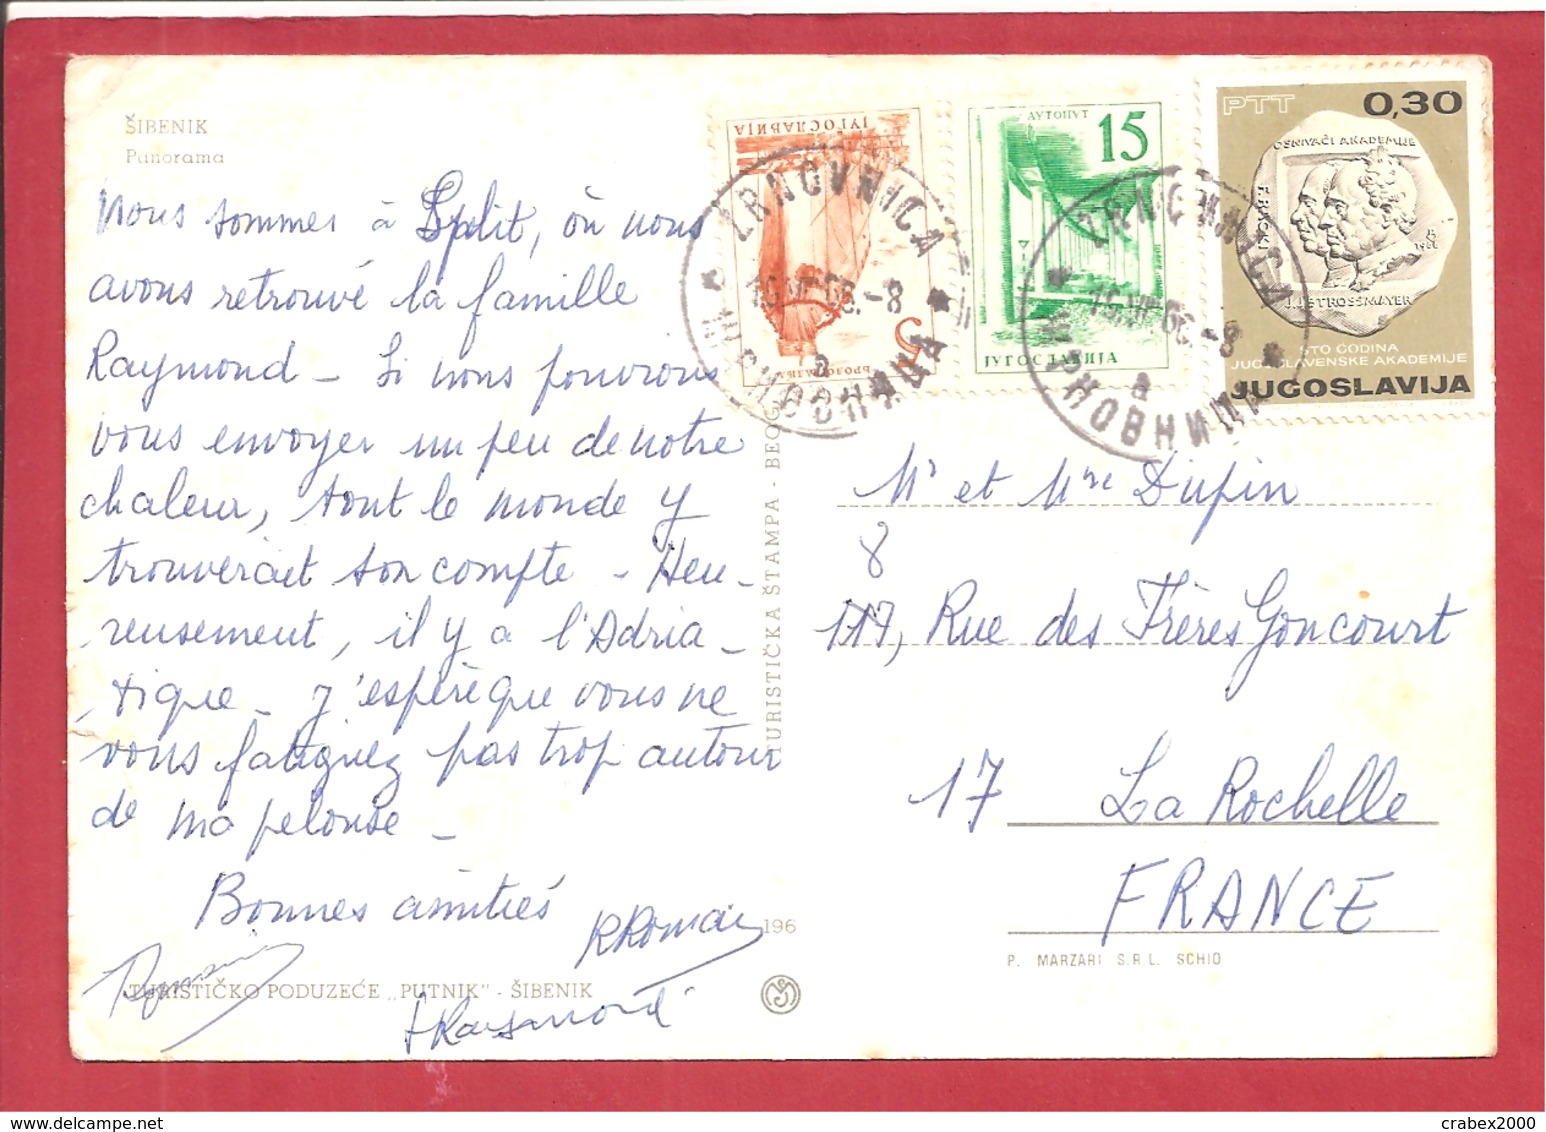 ŠIBENIK
Panorama
Nous sommes à Split, où nous
avons retrouvé la famille
Raymond - Si nous pouvions
vous envoyer un peu de notre
chaleur, tout le monde y
trouverait son compte - Heu-
reusement, il y a l'Adria-
tique - J'espère que vous ne
vous fatiguez pas trop autour
de ma pelouse -
Bonnes amitiés
RRomain
FRaymond
TURISTIČKO PODUZEĆE „PUTNIK" - ŠIBENIK
196
TURISTIČKA ŠTAMPA - BEOG
ЈУГОСЛАВИЈА
5
БРОДОГРАДЊА
АУТОПУТ
15
ЈУГОСЛАВИЈА
PTT 0,30
OSNIVAČI AKADEMIJE
F. RAČKI
1966
J.J.STROSSMAYER
STO GODINA
JUGOSLAVENSKE AKADEMIJE
JUGOSLAVIJA
ŽRNOVNICA
-8
a
ЖРНОВНИЦА
ŽRNOVNICA
-8
a
ЖРНОВНИЦА
Mr et Mme Dupin
8
117, Rue des Frères Goncourt
17 La Rochelle
FRANCE
P. MARZARI S.R.L. SCHIO
crabex2000